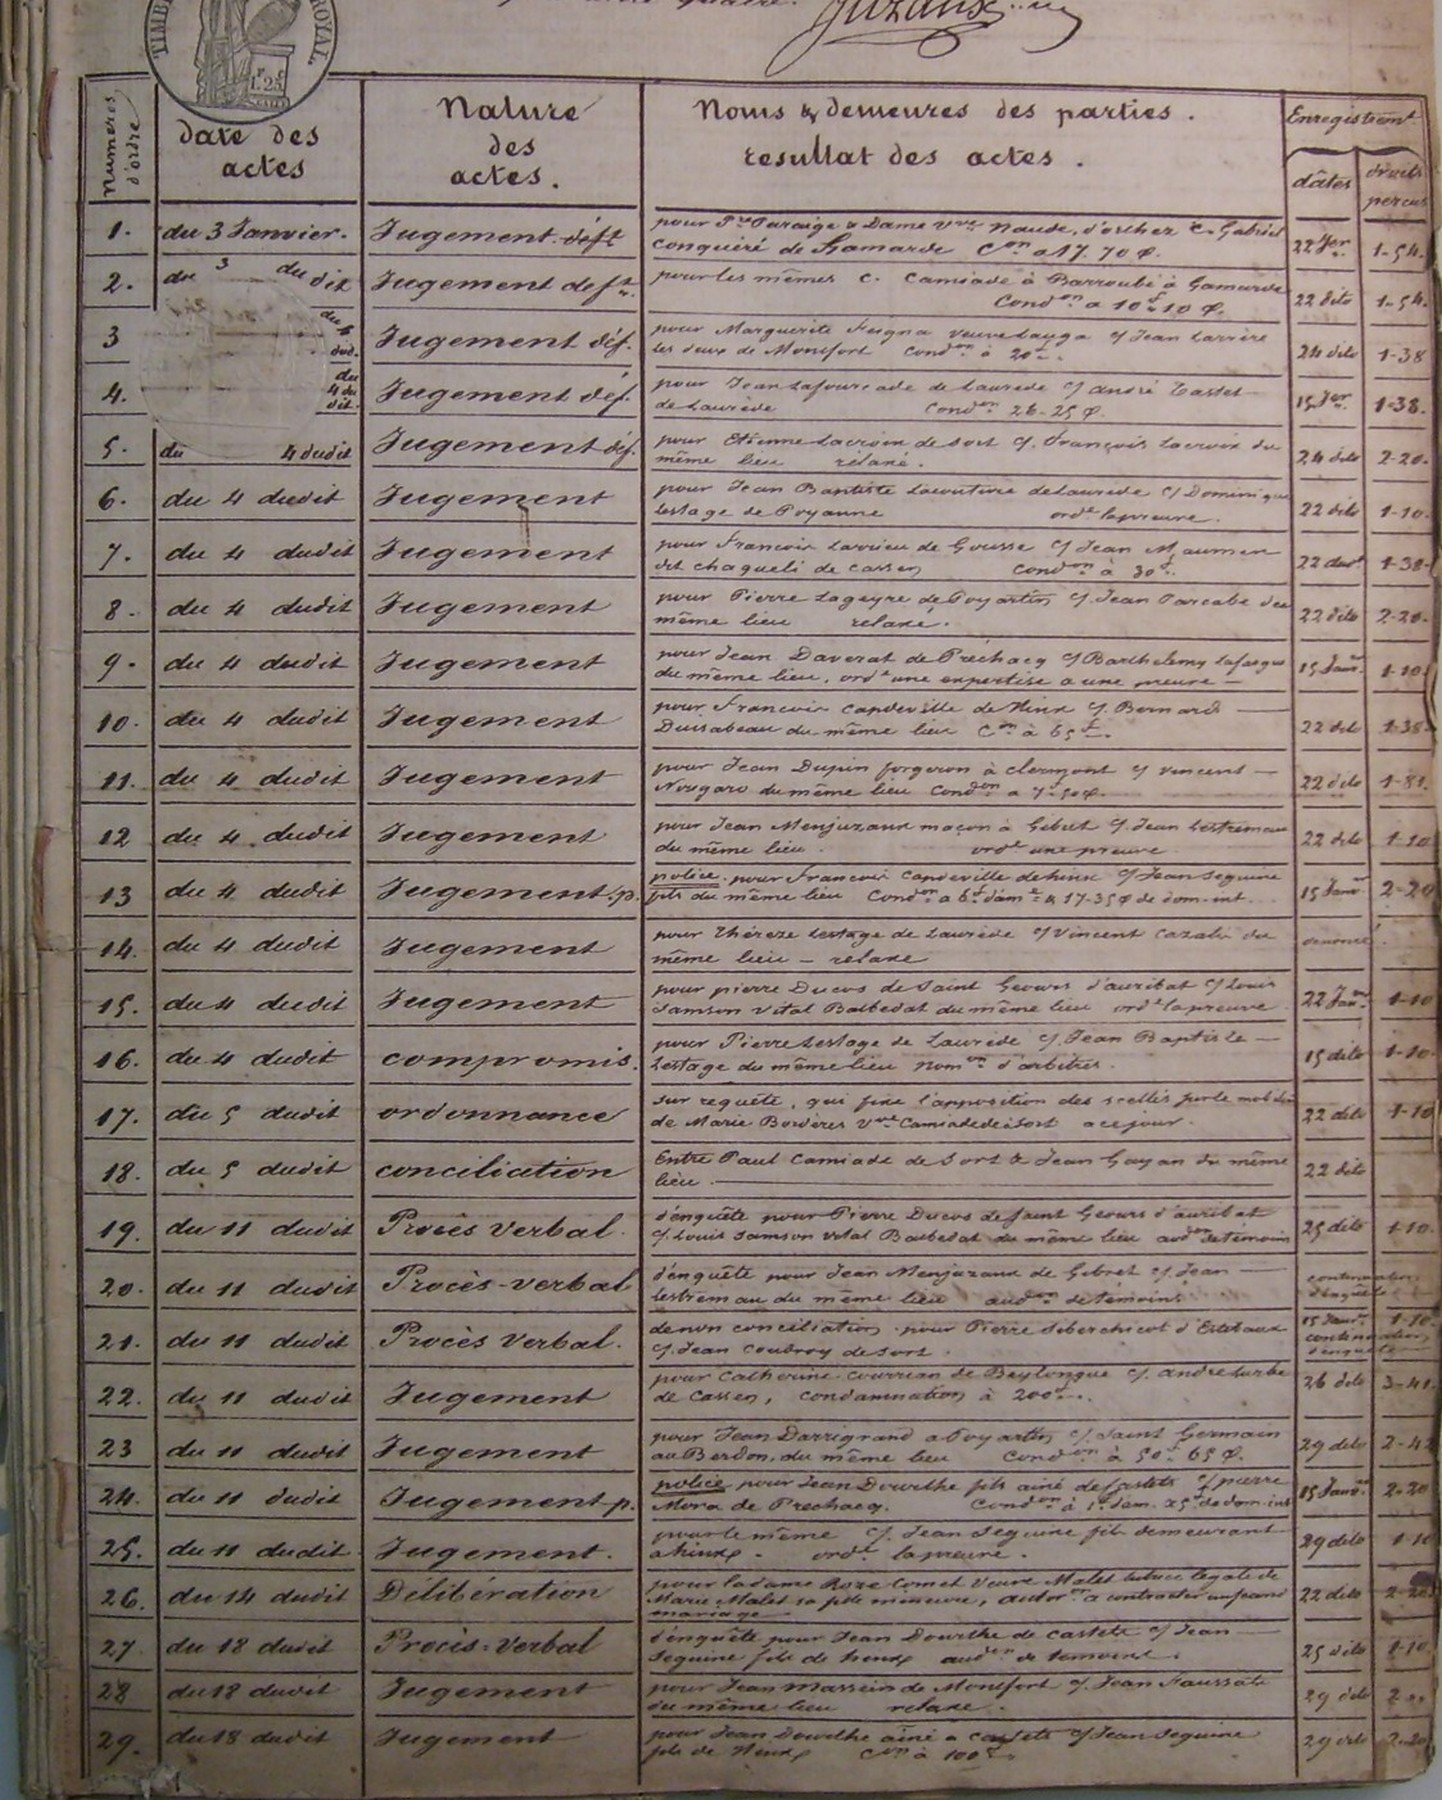 TIMBRE ROYAL
1.F 25.C
Numeros d'ordre
date des actes
Nature des actes.
Noms & demeures des parties.
resultat des actes.
Enregistremt
dâtes
droits percus
1. du 3 Janvier. Jugement déft pour Pre Paraige & Dame Vve Naude, d'orthez C. Gabriel
conquéré de Gamarde Con a 17. 70 c. 22 Jer 1-54.
2. du 3 du dit Jugement deft. pour les mêmes C. Camiade à Barroubé à Gamarde
Condon a 10f 10 c. 22 dito 1-54.
3 du 4 dud. Jugement déf. pour Marguerite Feigna veuve Lauga c/ Jean Larrère
les deux de Montfort Condon à 20f. 24 dito 1-38
4. du 4 du dit. Jugement déf. pour Jean Lafourcade de Laurède c/ André Tastet
de Laurède Condon 26-25 c. 15 Jer 1-38.
5. du 4 dudit Jugement déf. pour Etienne Lacroix de Sort c/ François Lacroix du
même lieu rélaxé. 24 dito 2-20.
6. du 4 dudit Jugement pour Jean Baptiste Lacouture de Laurède c/ Dominique
Lestage de Poyanne ordt la preuve. 22 dito 1-10.
7. du 4 dudit Jugement pour Francois Larrieu de Gousse c/ Jean Maumen
dit chaqueli de Cassen Condon à 30f. 22 dudt 1-38
8. du 4 dudit Jugement pour Pierre Lageyre de Poyartin c/ Jean Parcabe du
même lieu relaxe. 22 dito 2-20.
9. du 4 dudit Jugement pour Jean Daverat de Préchacq c/ Barthelemy Lafargue
du même lieu, ordt une expertise a une preuve 15 Janer 1-10
10. du 4 dudit Jugement pour Francois Capdeville de Hinx c/ Bernard
Duisabeau du même lieu Con à 65f. 22 dito 1-38
11. du 4 dudit Jugement pour Jean Dupin forgeron à Clermont c/ Vincent
Nougaro du même lieu Condon a 7f 50 c. 22 dito 1-81.
12 du 4 dudit Jugement pour Jean Menjuzaux maçon à Gibret c/ Jean Lestremau
du même lieu. ordt une preuve 22 dito 1-10
13 du 4 dudit Jugement.p. police. pour Francois Capdeville de hinx c/ Jean Seguine
fils du même lieu Condon a 6f d'ame & 17-35 c de dom. int. 15 Janer 2-20
14. du 4 dudit Jugement pour Thérèze Lestage de Laurède c/ Vincent Cazalis du
même lieu - relaxe
15. du 4 dudit Jugement pour pierre Ducos de Saint Geours d'auribat c/ Louis
Samson Vital Balbedat du même lieu ordt la preuve 22 Janer 1-10
16. du 4 dudit compromis. pour Pierre Lestage de Laurède c/ Jean Baptiste
Lestage du même lieu nomon d'arbitres. 15 dito 1-10.
17. du 5 dudit ordonnance sur requête, qui fixe l'apposition des scellés sur le mobilier
de Marie Bordères Vve Camiade de Sort a ce jour. 22 dito 1-10
18. du 5 dudit conciliation Entre Paul Camiade de Sort & Jean Gayan du même
lieu. 22 dito
19. du 11 dudit Procès Verbal. d'enquête pour Pierre Ducos de Saint Geours d'auribat
c/ Louis Samson Vital Balbedat du même lieu audon de témoins 25 dito 1-10.
20. du 11 dudit Procès-verbal d'enquête pour Jean Menjuzaux de Gibret c/ Jean
Lestremau du même lieu audon de témoins continuation d'enquête
21. du 11 dudit Procès Verbal. de non conciliation. pour Pierre Siberchicot d'Estibaux
c/ Jean Coudroy de Sort. 15 Janer 1-10. continuation d'enquête
22. du 11 dudit Jugement pour Catherine Courrian de Beylongue c/ andre Lurbe
de Cassen, condamnation à 200f. 26 dito 3-41.
23 du 11 dudit Jugement pour Jean Darrigrand a Poyartin c/ Saint Germain
au Berdon, du même lieu Condon à 50f 65 c. 29 dito 2-42
24. du 11 dudit Jugement-p. police pour Jean Dourthe fils ainé de Castets c/ pierre
Mora de Prechacq. Condon à 1f d'am. & 5f de dom. int 15 Janer 2-20
25. du 11 dudit. Jugement. pour le même c/. Jean Seguine fils demeurant
a hinx. ordt la preuve. 29 dito 1-10
26. du 14 dudit Délibération pour la dame Roze Comet Veuve Malet tutrice legale de
Marie Malet sa fille mineure, autoron a contracter un second
mariage 22 dito 2-20
27. du 18 dudit Procès-Verbal d'enquête pour Jean Dourthe de Castets c/ Jean
Seguine fils de hinx audon de temoins. 25 dito 1-10
28 du 18 dudit Jugement pour Jean Massein de Montfort c/. Jean Faussats
du même lieu relaxe. 29 dito
29. du 18 dudit Jugement pour Jean Dourthe ainé a Castets c/ Jean Seguine
fils de Hinx Con à 100f. 29 dito 2-20